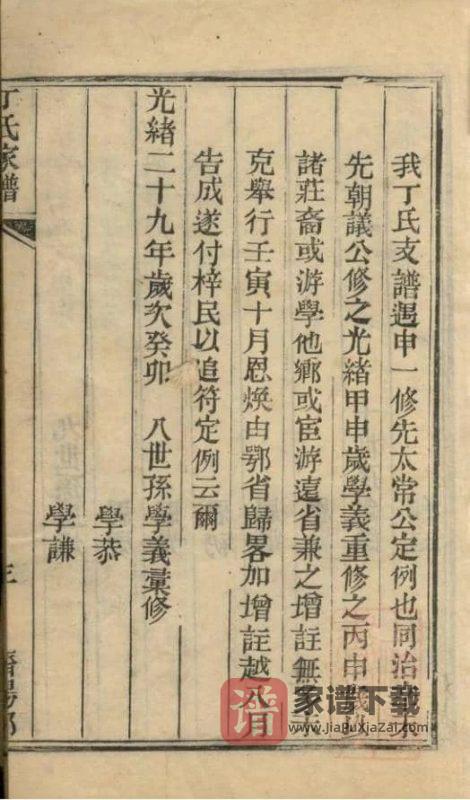 我丁氏支譜遇申一修先太常公定例也同治
先朝議公修之光緒甲申歲學義重修之丙申
諸莊裔或游學他鄉或宦游遠省兼之增註無
克舉行壬寅十月恩煥由鄂省歸畧加增註越八月
告成遂付梓民以追符定例云爾
光緒二十九年歲次癸卯 八世孫學義彙修
學恭
學謙
丁氏家譜
三
濟陽郡
譜
家谱下载
www.JiaPuXiaZai.com